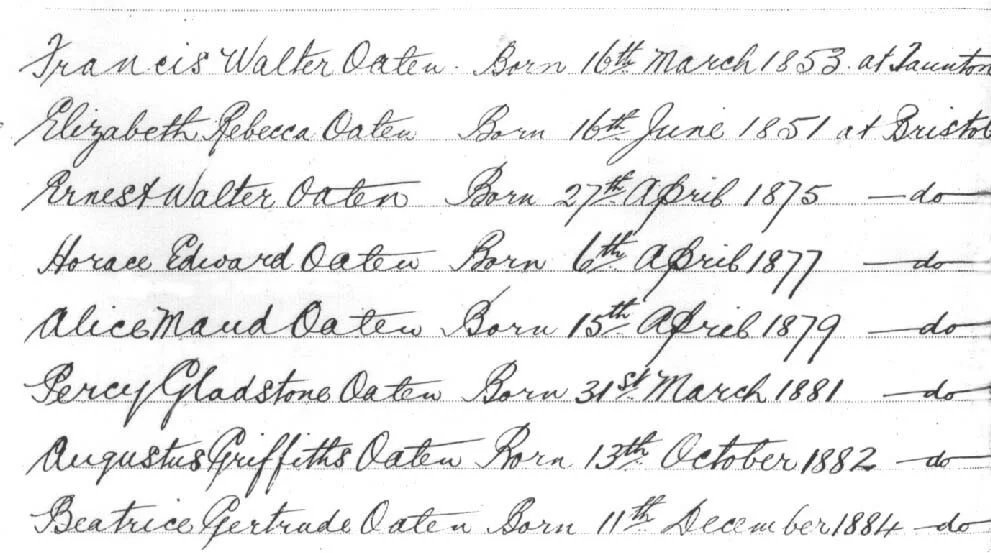 Francis Walter Oaten. Born 16th March 1853. at Taunton
Elizabeth Rebecca Oaten Born 16th June 1851 at Bristol
Ernest Walter Oaten Born 27th April 1875 — do —
Horace Edward Oaten Born 6th April 1877 — do —
Alice Maud Oaten Born 15th April 1879 — do —
Percy Gladstone Oaten Born 31st March 1881 — do —
Augustus Griffiths Oaten Born 13th October 1882 — do —
Beatrice Gertrude Oaten Born 11th December 1884 — do —